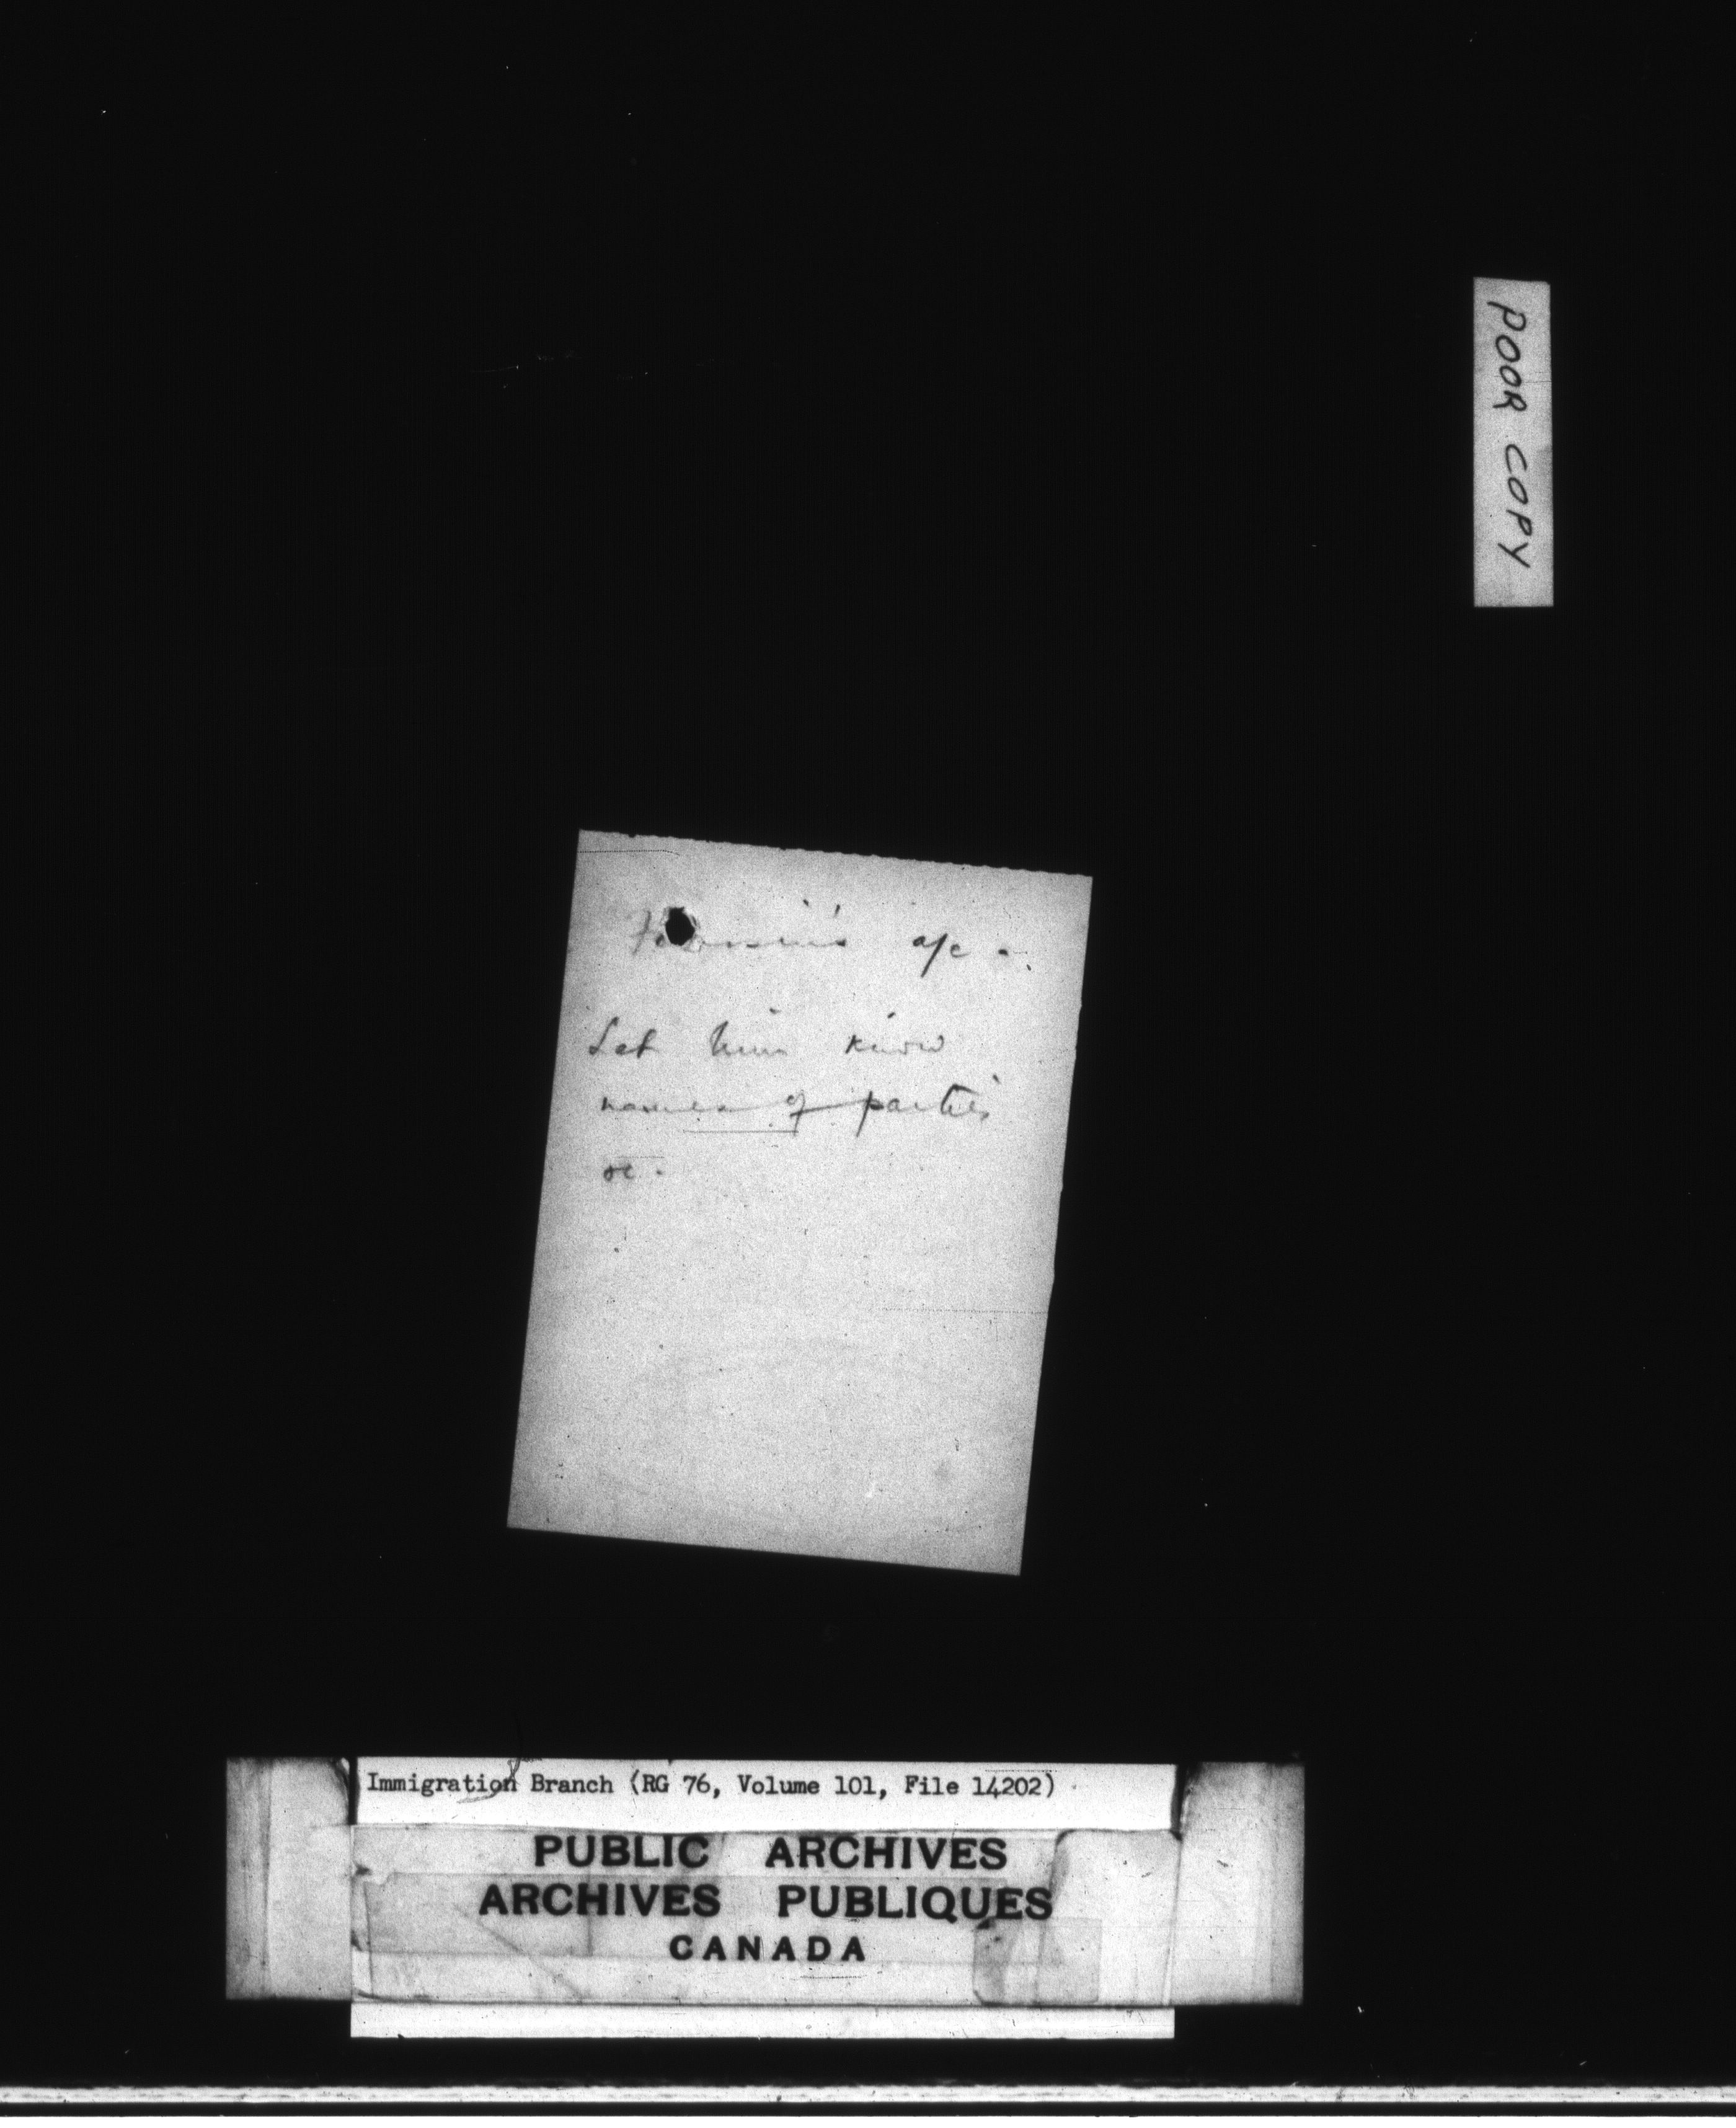 POOR COPY
a/c.
Let him know
names of parties
&c.
Immigration Branch (RG 76, Volume 101, File 14202)
PUBLIC ARCHIVES
ARCHIVES PUBLIQUES
CANADA